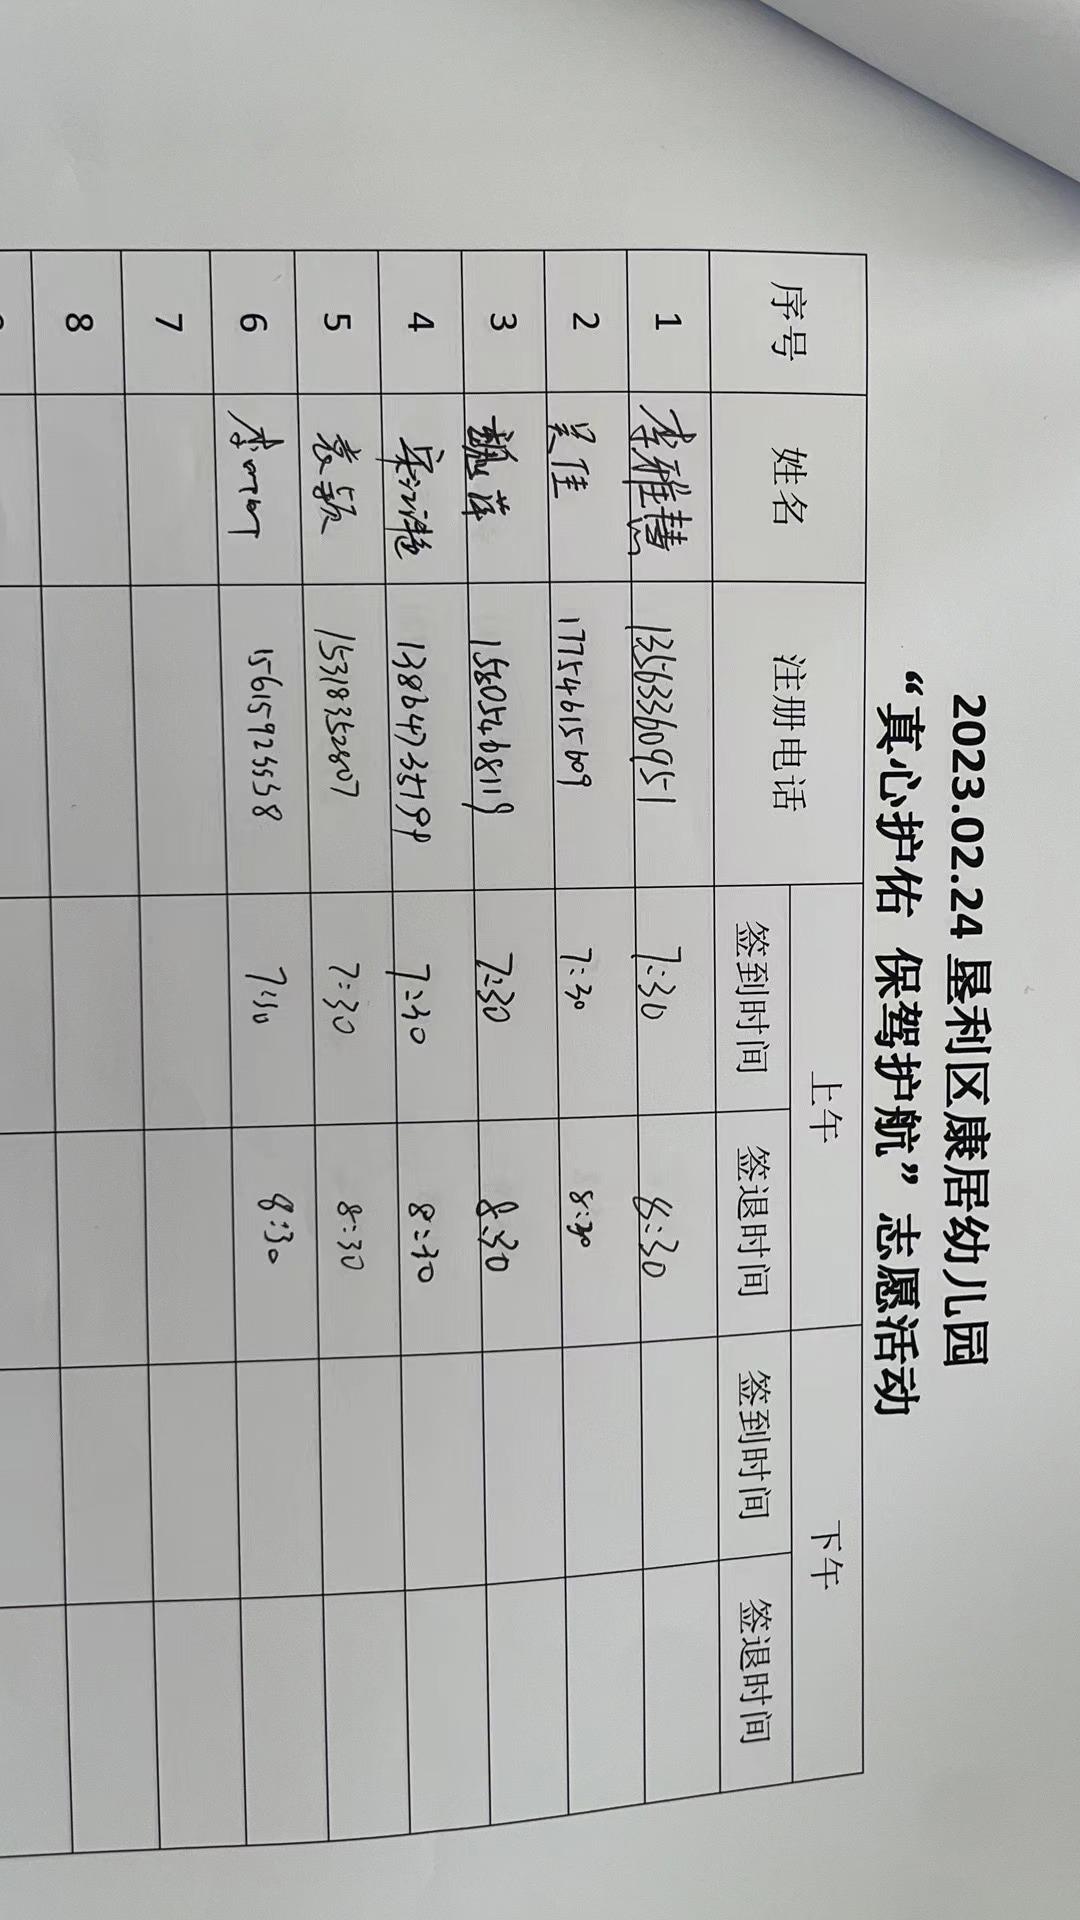 2023.02.24 垦利区康居幼儿园
“真心护佑 保驾护航”志愿活动
序号 姓名 注册电话 上午 下午
签到时间 签退时间 签到时间 签退时间
1 李雅慧 13563360951 7:30 8:30
2 吴佳 17754615609 7:30 8:30
3 魏萍 15805468119 7:30 8:30
4 13864735199 7:30 8:30
5 袁颖 15318352807 7:30 8:30
6 李 15615925558 7:30 8:30
7
8